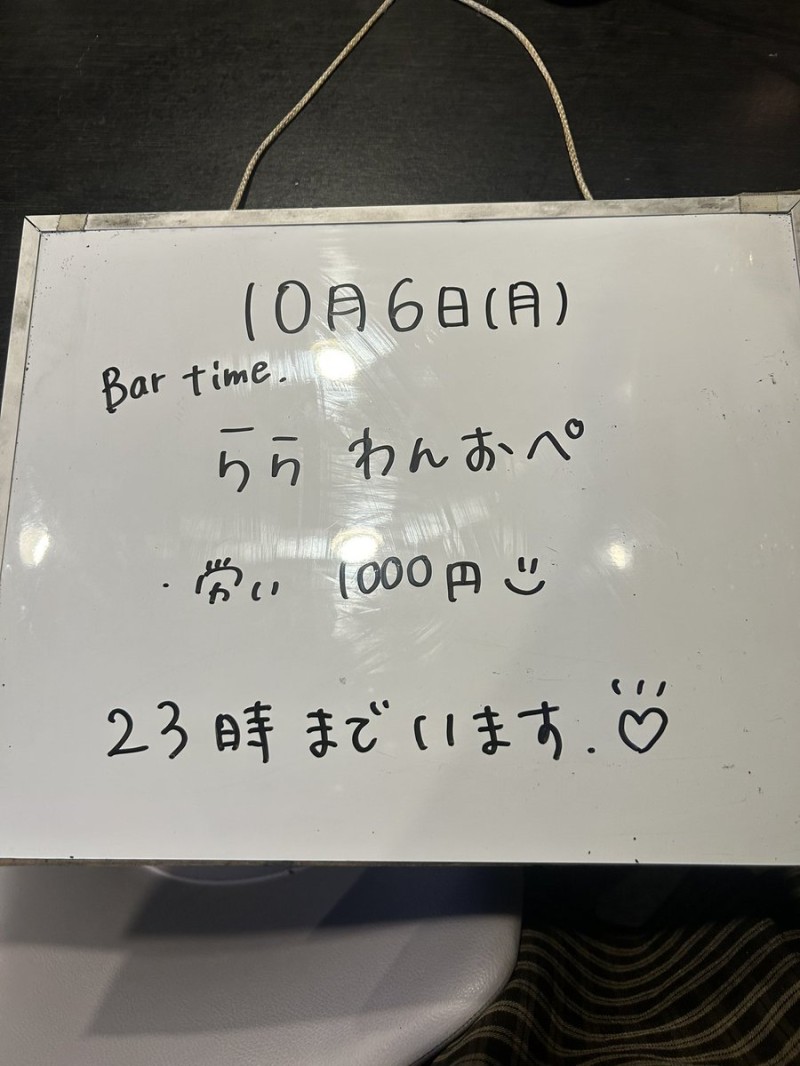 10月6日(月)
Bar time.
らら わんおぺ
・労い 1000円
23時までいます.♡